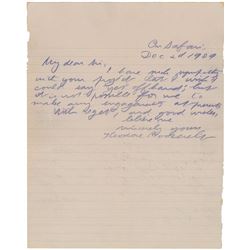 On Safari.
Dec 2d 1909
My dear Sir, I have much sympathy
with your project but I wish I
could say yes offhand; but
it is not possible for me to
make any engagements at present.
With regret and good wishes,
believe me
sincerely yours,
Theodore Roosevelt